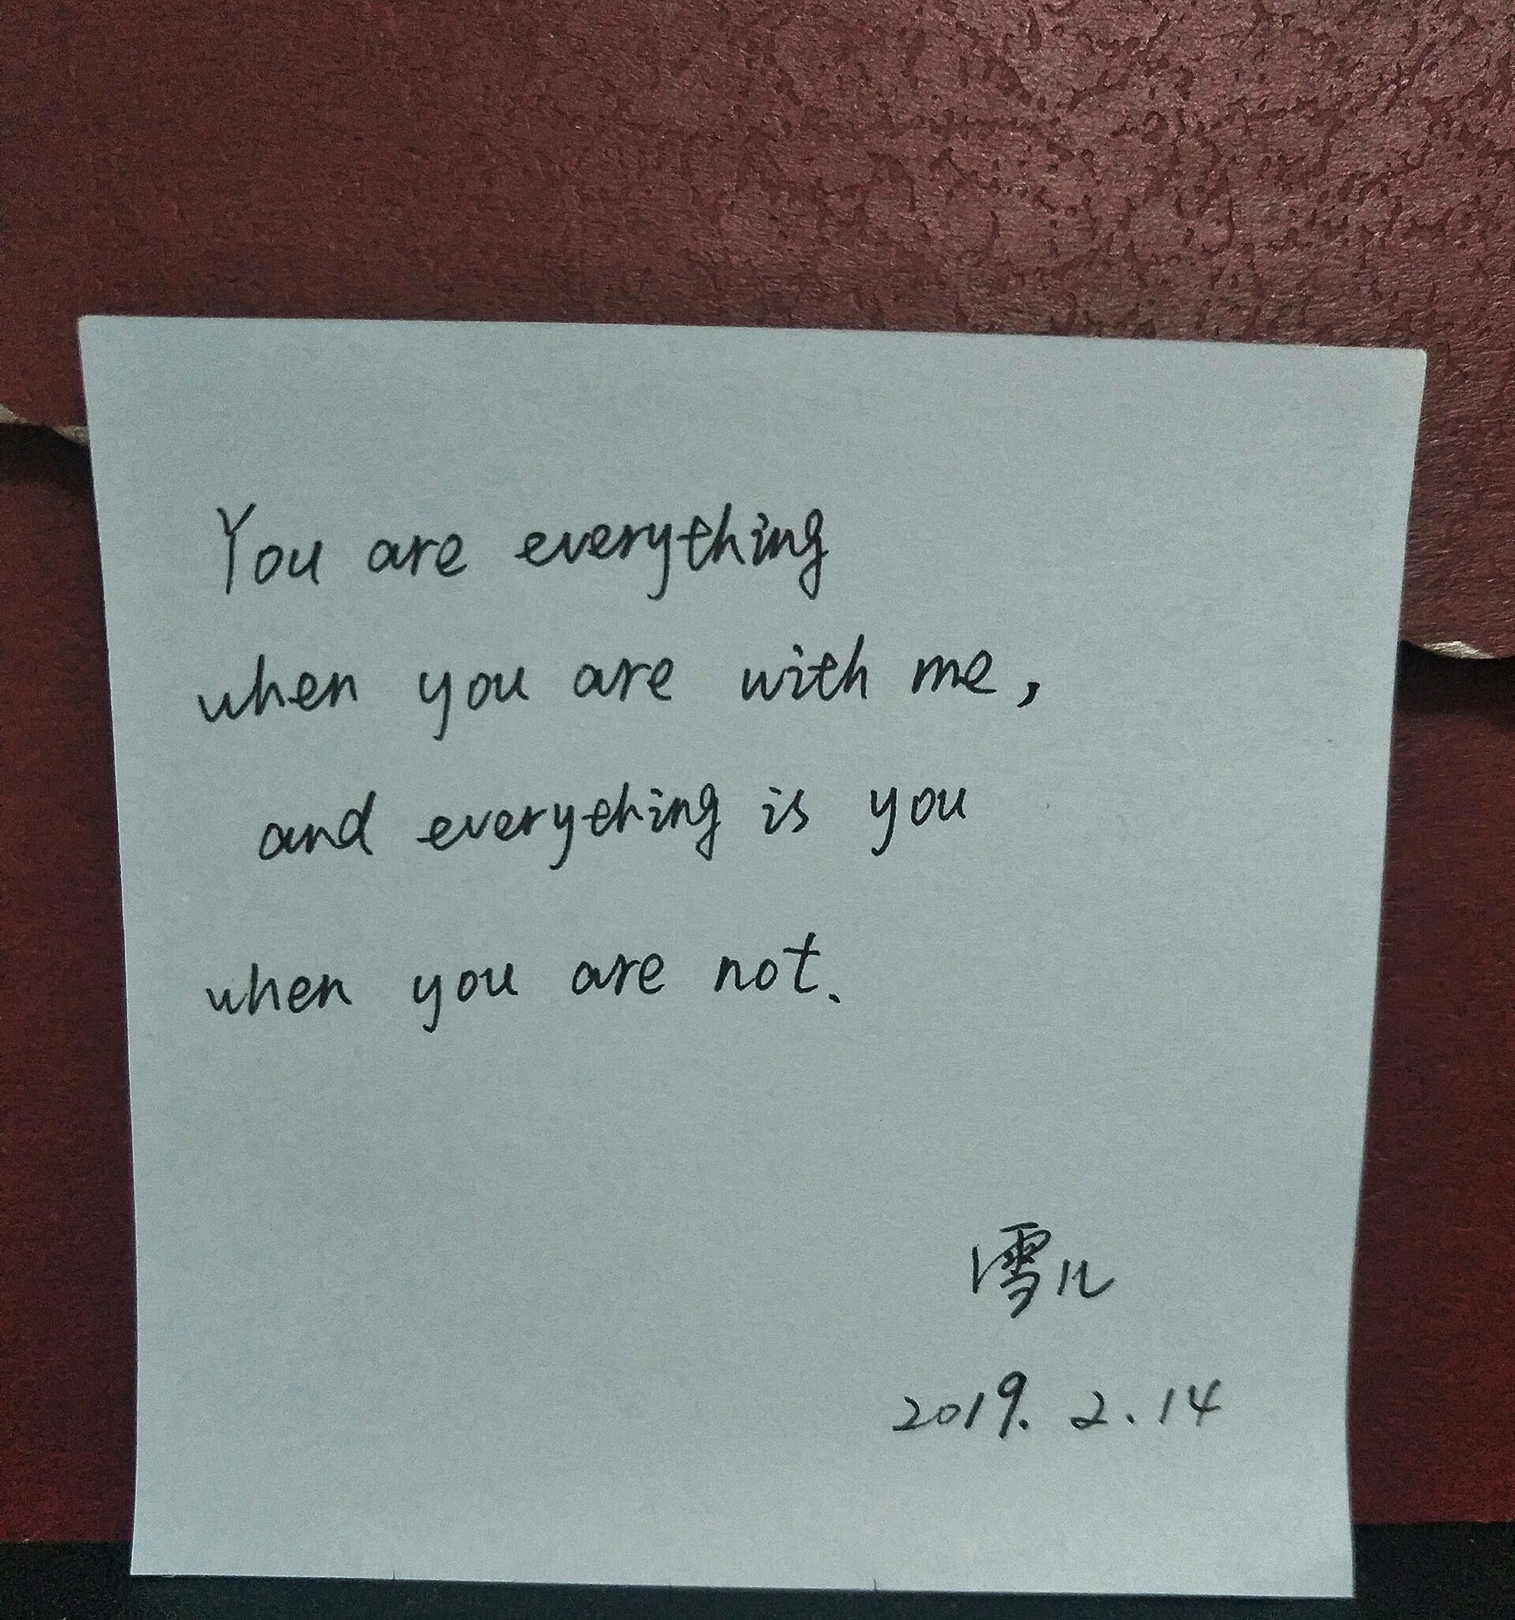 You are everything
when you are with me,
and everything is you
when you are not.
雪儿
2019. 2. 14